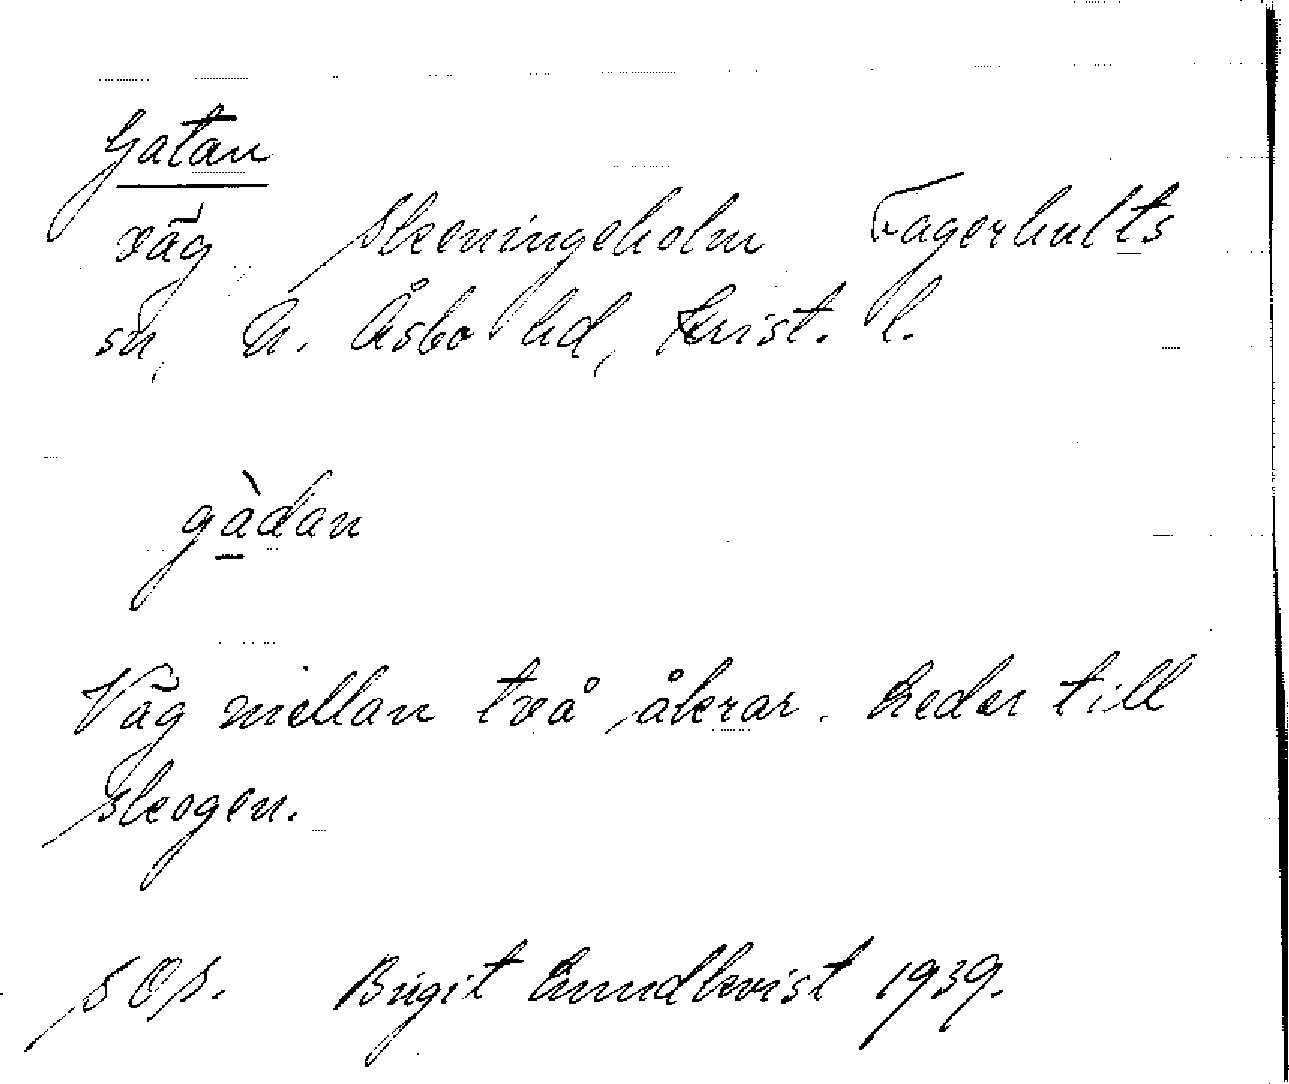 Gatan
väg Skeningeholm Fagerhults
sn, N. Åsbo hd, Krist. l.
gàdan
Väg mellan två åkrar. Leder till
skogen.
Birgit Lundkvist 1939.